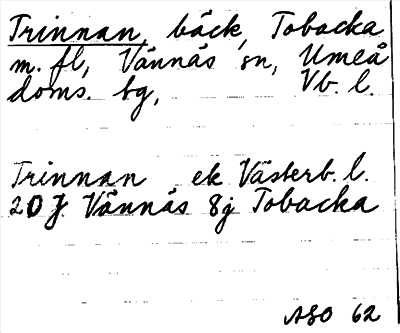 Trinnan, bäck, Tobacka
m. fl, Vännäs sn, Umeå
doms. bg, Vb. l.
Trinnan ek Västerb. l.
20 J Vännäs 8j Tobacka
ASO 62